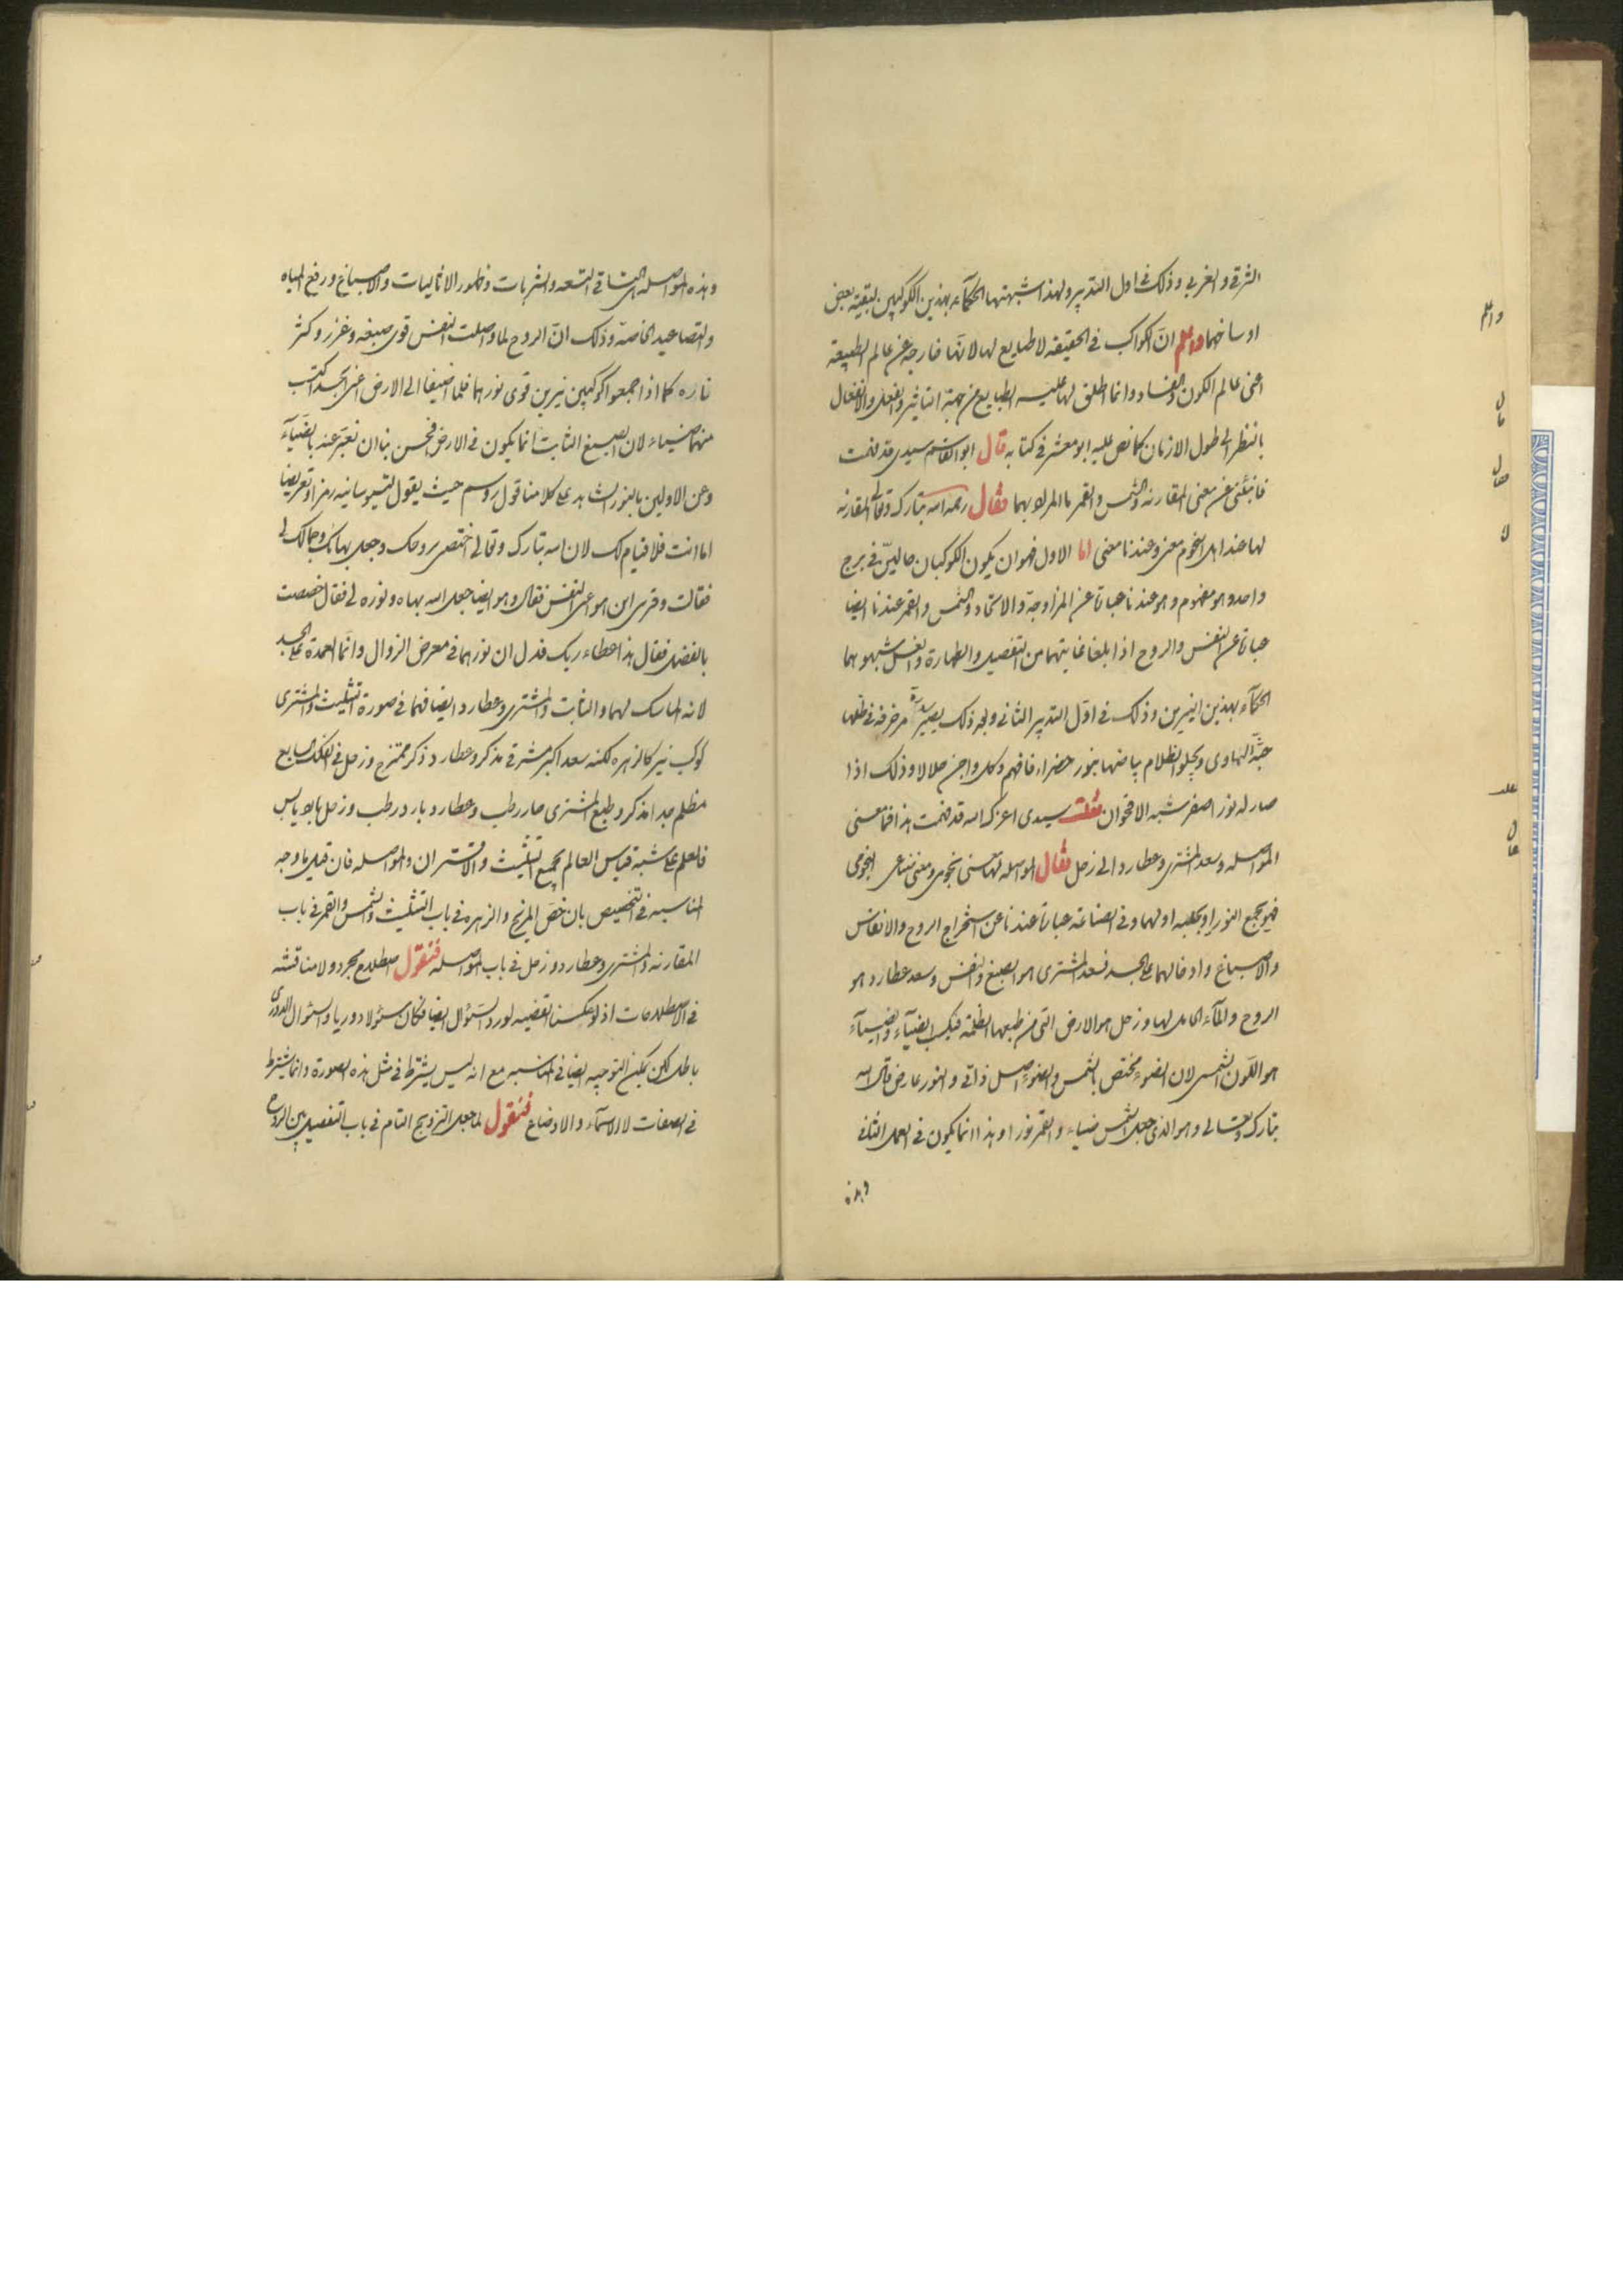 الشرقي والغربي وذلك في اول التدبير ولهذا شبهتها الحكمآء بهذين الكوكبين لبقية بعض
اوساخهما واعلم انّ الكواكب في الحقيقة لا طبايع لها لانها خارجة عن عالم الطبيعة
اعني عالم الكون والفساد وانما اطلق لها عليه الطبايع من جهة التاثير والفعل والانفعال
بالنظر الى طول الازمان كما نص عليه ابو معشر في كتابه قال ابو القاسم سيدي قد فهمت
فانبئني عن معنى المقارنة والشمس والقمر ما المراد بهما فقال رحمه الله تبارك وتعالى المقارنة
لها عند اهل النجوم معنى وعندنا معنى اما الاول فهو ان يكون الكوكبان حالين في برج
واحد وهو مفهوم وهو عندنا عبارة عن المزاوجة والاتحاد والشمس والقمر عندنا ايضا
عبارة عن النفس والروح اذا بلغا غايتهما من التفصيل والطهارة والغسل شبهوهما
الحكمآء بهذين النيرين وذلك في اوّل التدبير الثاني وبعد ذلك يصير سدرة مزخرفة في ظلها
جنّة الهاوى ويجلو الظلام بياضها بنور خضراء فافهم وكل واجن حلالا وذلك اذا
صار له نور اصفر شبه الاقحوان فقلت سيدي اعزك الله قد فهمت هذا فما معنى
المواصلة وسعد المشتري وعطارد الى زحل فقال المواصلة لها معنى نجومي ومعنى صناعي النجومي
فهو يجمع النور او يجلبه اولهما وفي الصناعة عبارة عندنا عن استخراج الروح والانفاس
والاصباغ وادخالهما على الجسد فسعد المشتري هو الصبغ والنفس وسعد عطارد هو
الروح والمآء الحامل لها وزحل هو الارض التي من طبعها الظلمة فيكسب الضيآء والضيآء
هو اللّون الشمسي لان الضوء مختص بالشمس والضوء اصل ذاتي والنور عارض قال الله
تبارك وتعالى وهو الذي جعل الشمس ضياء والقمر نورا وهذا انما يكون في العمل الثاني
وهذه
وهذه المواصلة الشاقي التسعه والشربات وظهور الاثاليات والاصباغ ورفع المياه
والتصاعيد الخاصة وذلك انّ الروح لما واصلت النفس قوى صبغه وغزر وكثر
ناره كما اذا جمعوا كوكبين نيرين قوى نورهما فلما اضيفا الى الارض اعني الجسد اكتسب
منهما ضياء لان الصبغ الثابت انما يكون في الارض فحسن بنا ان نعبّر عنه بالضيآء
وعن الاولين بالنور الشاهد على كلامنا قول روسم حيث يقول لتيوسانيه رمزا وتعريضا
اما انت فلا قيام لك لان الله تبارك وتعالى اختصني بروحك وجعل بهائك وجمالك لي
فقالت وقرى اين هو اعني النفس فقال وهو ايضا جعل الله بهاه ونوره لي فقال خصصت
بالفضل فقال هذا عطاء ربك فدل ان نورهما في معرض الزوال وانما العمدة على الجسد
لانه الماسك لهما والثابت والمشتري وعطارد ايضا فهما في صورة التثليث والمشتري
كوكب نير كالزهره لكنه سعد اكبر مشرقي مذكر وعطارد ذكر ممتزج وزحل في الفلك السابع
مظلم جدا مذكر وطبع المشتري حار رطب وعطارد بارد رطب وزحل بارد يابس
فالعلم على شبه قياس العالم بجمع التثليث والاقتران والمواصله فان قيل ما وجه
المناسبه في التخصيص بان خصّ المريخ والزهره في باب التثليث والشمس والقمر في باب
المقارنه والمشتري وعطارد وزحل في باب المواصله فنقول اصطلاح مجرد ولا مناقشه
في الاصطلاحات اذ لو عكسنا القضيه لورد السؤال ايضا فكان سئولا دوريا والسئوال الدوري
باطل لكن يمكن التوجيه ايضا في المناسبه مع انه ليس يشترط في مثل هذه الصورة وانما يشترط
في الصفات لا الاسمآء والاوضاع فنقول لما جعل التزويج التام في باب التفصيل بين الروح
واعلم